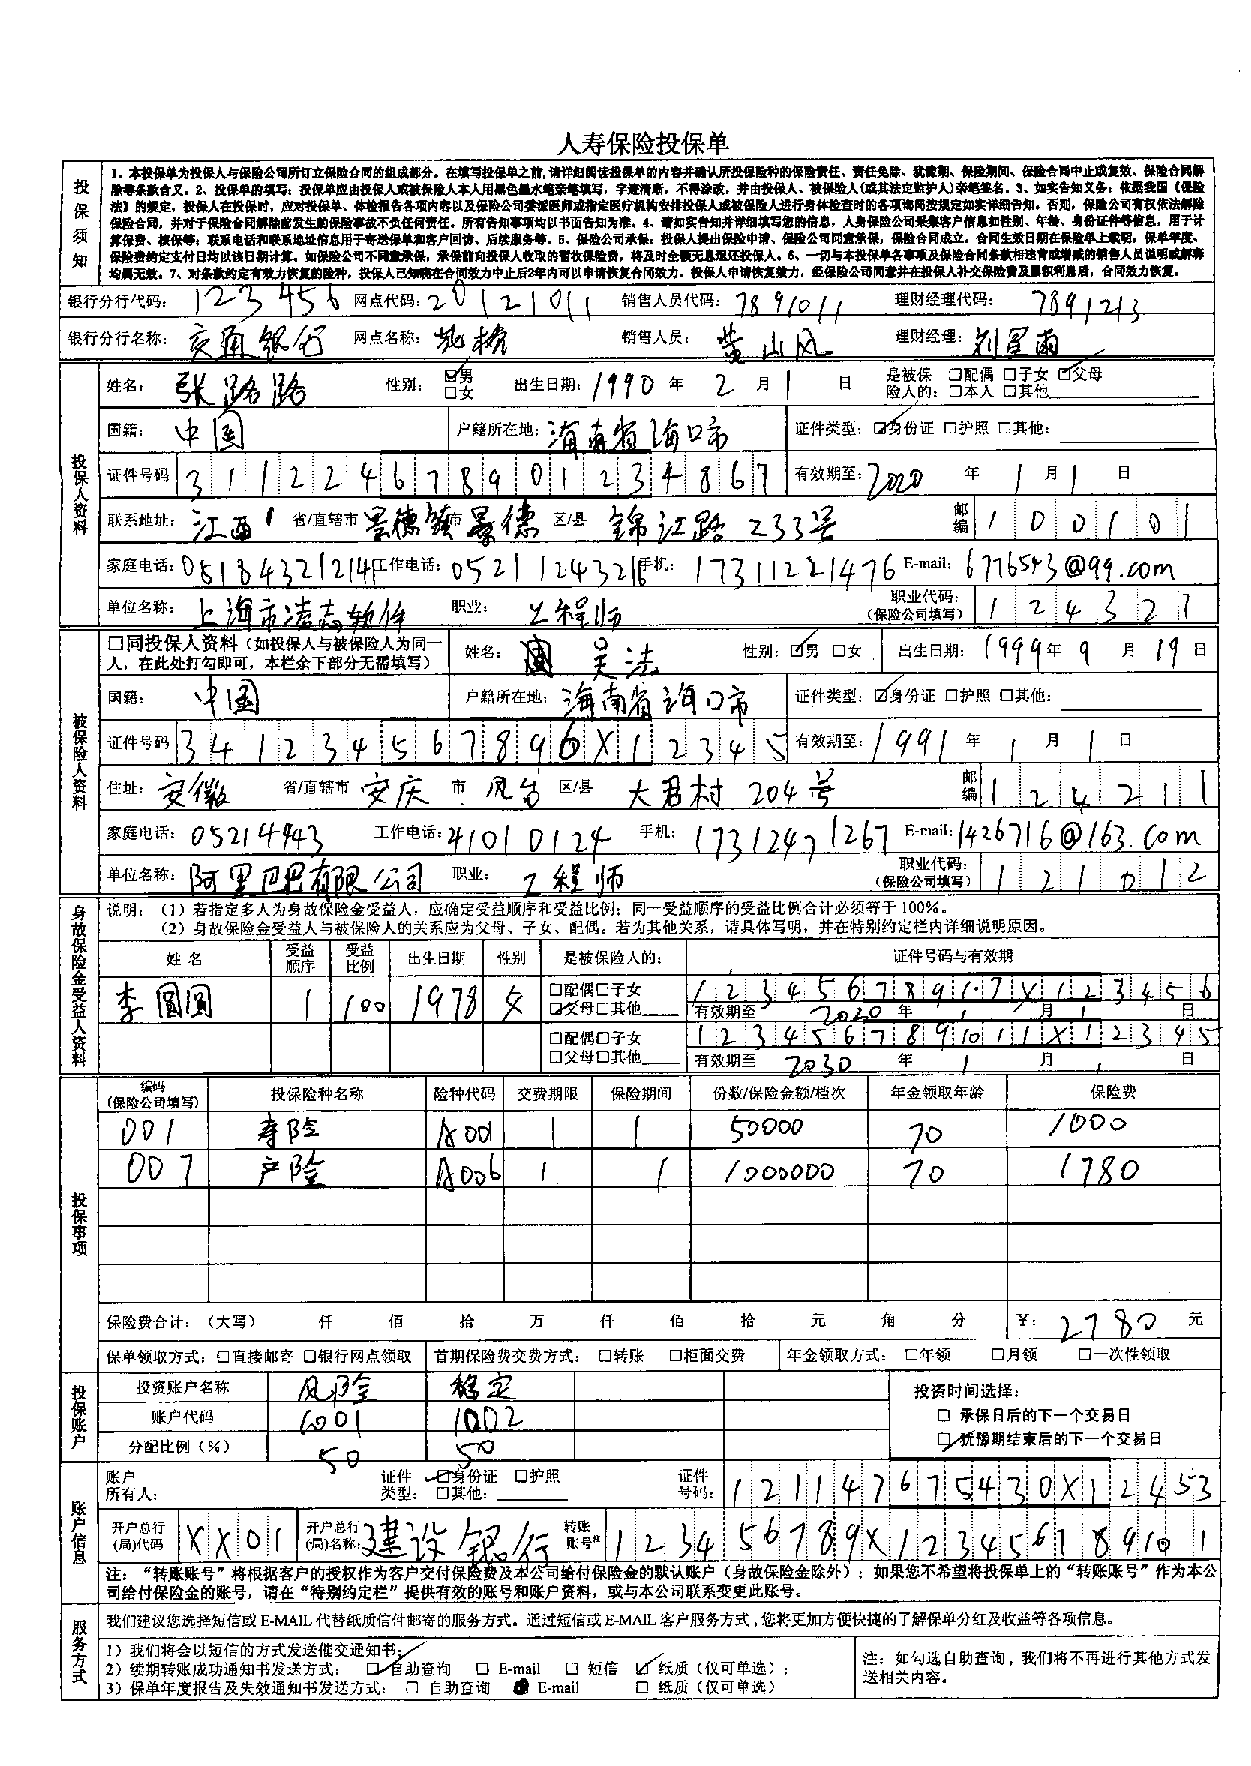 人寿保险投保单
投保须知
1、本投保单为投保人与保险公司所订立保险合同的组成部分。在填写投保单之前,请详细阅读投保单的内容并确认所投保险种的保险责任、责任免除、犹豫期、保险期间、保险合同中止或复效、保险合同解
除等条款含义。2、投保单的填写：投保单应由投保人或被保险人本人用黑色墨水笔亲笔填写，字迹清晰，不得涂改，并由投保人、被保险人(或其法定监护人)亲笔签名。3、如实告知义务：依据我国《保险
法》的规定，投保人在投保时，应对投保单、体检报告各项内容以及保险公司委派医师或指定医疗机构安排投保人或被保险人进行身体检查时的各项询问按规定如实详细告知。否则，保险公司有权依法解除
保险合同，并对于保险合同解除前发生的保险事故不负任何责任。所有告知事项均以书面告知为准。4、请如实告知并详细填写您的信息，人身保险公司采集客户信息如性别、年龄、身份证件等信息，用于计
算保费、核保等；联系电话和联系地址信息用于寄送保单和客户回访、后续服务等。5、保险公司承保：投保人提出保险申请、保险公司同意承保，保险合同成立。合同生效日期在保险单上载明，保单年度、
保险费约定支付日均以该日期计算。如保险公司不同意承保，承保前向投保人收取的暂收保险费，将及时全额无息退还投保人。6、一切与本投保单各事项及保险合同条款相违背或增减的销售人员说明或解释
均属无效。7、对条款约定有效力恢复的险种，投保人已知晓在合同效力中止后2年内可以申请恢复合同效力，投保人申请恢复效力，经保险公司同意并在投保人补交保险费及累积利息后，合同效力恢复。
银行分行代码： 123456 网点代码：20121011 销售人员代码： 7891011 理财经理代码： 7891213
银行分行名称： 交通银行 网点名称： 销售人员： 黄山风 理财经理： 刘星雨
投保人资料
姓名： 张路路 性别： ☑男 □女 出生日期：1990 年 2 月 1 日 是被保险人的： □配偶 □子女 ☑父母 □本人 □其他
国籍： 中国 户籍所在地： 海南省海口市 证件类型：☑身份证 □护照 □其他：
证件号码 311224678901234867 有效期至：2020 年 1 月 1 日
联系地址： 江西 省/直辖市 景德镇市 景德 区/县 锦江路233号 邮编 100101
家庭电话：05184321214 工作电话：05211243216 手机：17311221476 E-mail：6776543@qq.com
单位名称： 上海市凌志软件 职业： 工程师 职业代码：(保险公司填写) 124321
被保险人资料
□同投保人资料（如投保人与被保险人为同一人，在此处打勾即可，本栏余下部分无需填写） 姓名： 吴法 性别：☑男 □女 出生日期：1999年 9 月 19 日
国籍： 中国 户籍所在地： 海南省海口市 证件类型：☑身份证 □护照 □其他：
证件号码 3412345678960X12345 有效期至：1991 年 1 月 1 日
住址： 安徽 省/直辖市 安庆 市 凤台 区/县 大君村 204号 邮编 124211
家庭电话：05214443 工作电话：41010124 手机：17312471267 E-mail：1426716@163.com
单位名称： 阿里巴巴有限公司 职业： 工程师 职业代码：(保险公司填写) 121012
身故保险金受益人资料
说明：（1）若指定多人为身故保险金受益人，应确定受益顺序和受益比例；同一受益顺序的受益比例合计必须等于100%。
（2）身故保险金受益人与被保险人的关系应为父母、子女、配偶。若为其他关系，请具体写明，并在特别约定栏内详细说明原因。
姓 名 受益顺序 受益比例 出生日期 性别 是被保险人的： 证件号码与有效期
李圆圆 1 100 1978 女 □配偶□子女 ☑父母□其他 1234567891.7X123456
有效期至 2030 年 1 月 1 日
□配偶□子女 □父母□其他 1234567891011X12345
有效期至 2030 年 1 月 1 日
投保事项
编码(保险公司填写) 投保险种名称 险种代码 交费期限 保险期间 份数/保险金额/档次 年金领取年龄 保险费
001 寿险 A001 1 1 50000 70 1000
007 产险 A006 1 1 1000000 70 1780
保险费合计：（大写） 仟 佰 拾 万 仟 佰 拾 元 角 分 ¥： 2780 元
保单领取方式：□直接邮寄 □银行网点领取 首期保险费交费方式：□转账 □柜面交费 年金领取方式：□年领 □月领 □一次性领取
投保账户
投资账户名称 风险 稳定 投资时间选择：
账户代码 1001 1002 □ 承保日后的下一个交易日
分配比例（%） 50 50 ☑ 犹豫期结束后的下一个交易日
账户信息
账户所有人： 证件类型：☑身份证 □护照 □其他： 证件号码： 121147675430X12453
开户总行(局)代码 XX01 开户总行(局)名称： 建设银行 转账账号* 123456789X12345678910 1
注：“转账账号”将根据客户的授权作为客户交付保险费及本公司给付保险金的默认账户（身故保险金除外）；如果您不希望将投保单上的“转账账号”作为本公
司给付保险金的账号，请在“特别约定栏”提供有效的账号和账户资料，或与本公司联系变更此账号。
服务方式
我们建议您选择短信或E-MAIL代替纸质信件邮寄的服务方式。通过短信或E-MAIL客户服务方式，您将更加方便快捷的了解保单分红及收益等各项信息。
1）我们将会以短信的方式发送催交通知书；
2）续期转账成功通知书发送方式： ☑自助查询 □ E-mail □ 短信 ☑纸质（仅可单选）；
3）保单年度报告及失效通知书发送方式：□ 自助查询 ● E-mail □ 纸质（仅可单选）
注：如勾选自助查询，我们将不再进行其他方式发
送相关内容。